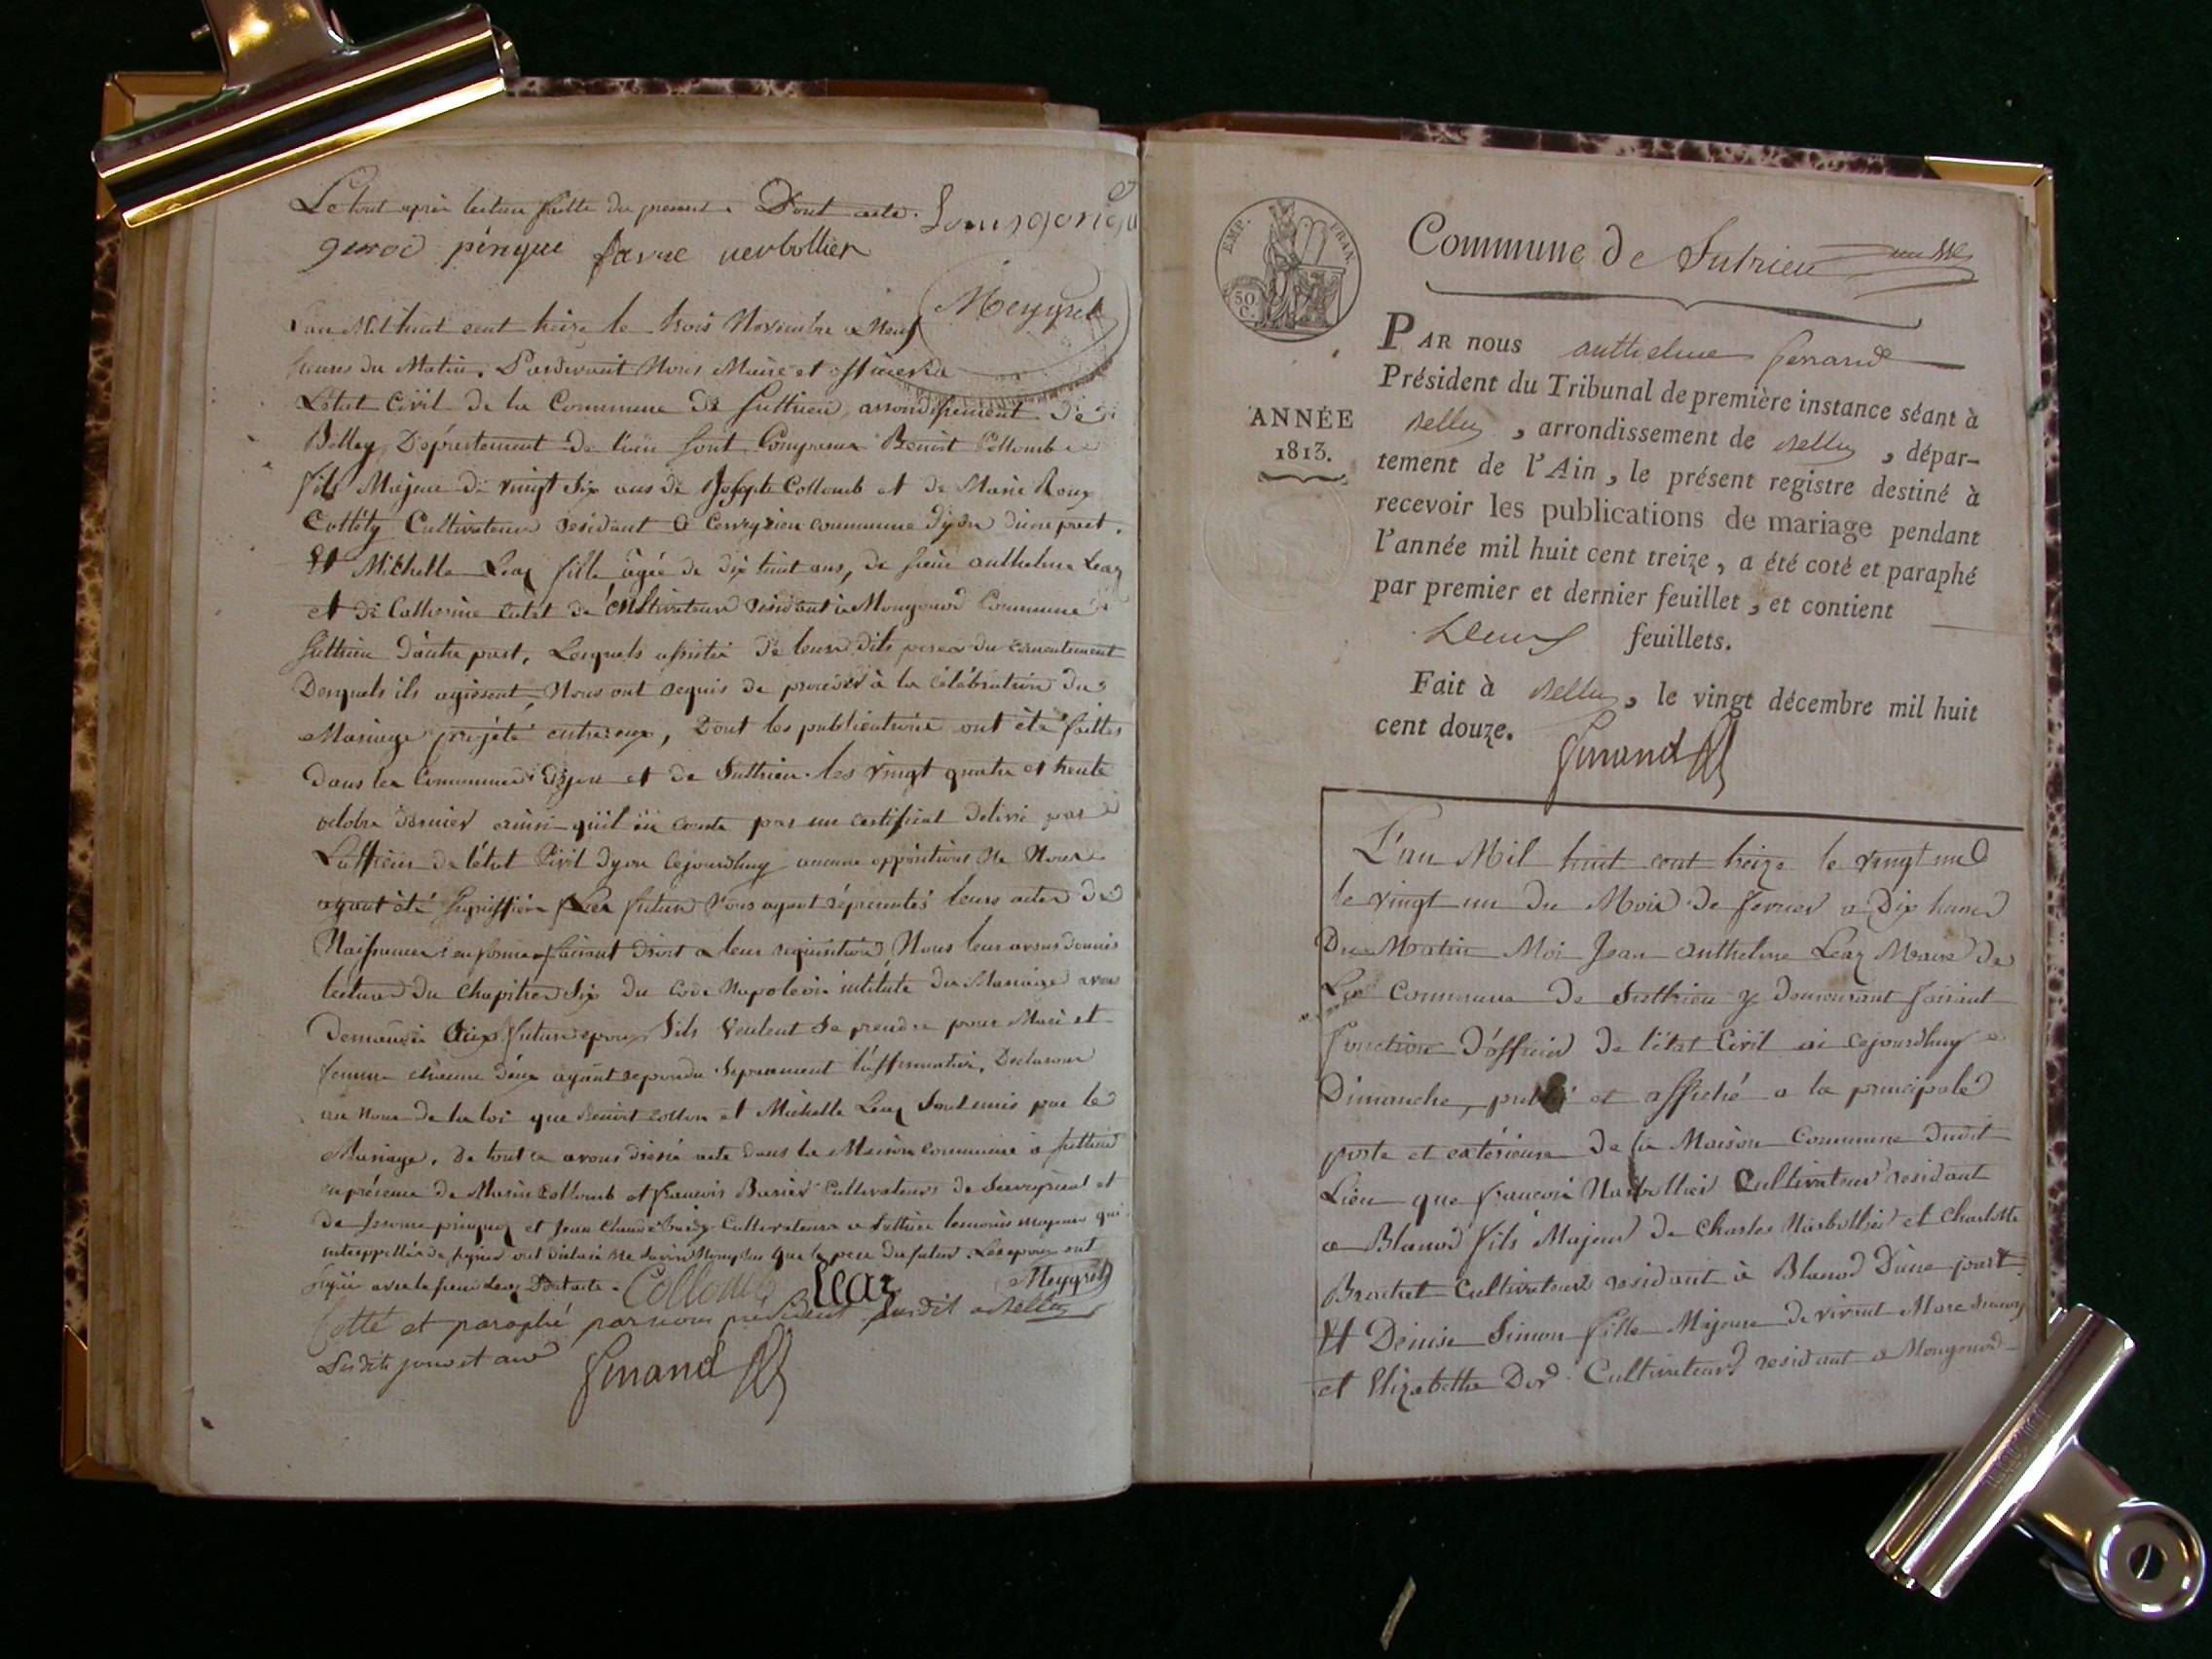 Le tout après lecture faitte du present. Dont acte.
gurod pingue favre verbollier
Meygret
L'an Mil huit cent treize le trois Novembre a Neuf
heures du Matin, Pardevant Nous Maire et officier de
L'état Civil de la Commune de Suttrieu, arrondissement de
Belley Département de l'ain sont Comparus Benoit Collomb
fils Majeur de vingt six ans de Joseph Collomb et de Marie Roux
Cultivateurs residant a commune d'yon d'une part.
Et Michelle Leaz fille agée de dix huit ans, de sieur anthelme Leaz
et de Catherine Cultivateurs residant a Mongonod Commune
Suttrieu d'autre part, Lesquels assistés de leurs dits peres du consentement
Desquels ils agissent, Nous ont requis de proceder à la célébration du
Mariage projeté entre eux, Dont les publications ont été faittes
dans les Communes d'yon et de Suttrieu les vingt quatre et trente
octobre dernier ainsi qu'il en conste par un certificat delivré par
L'officier de l'état Civil dyon cejourdhuy aucune oppositions Ne Nous
ayant été signiffiée Les futurs Nous ayant représentés leurs actes de
Naissances en forme faisant droit a leur requisition Nous leur avons donnés
lecture du chapitre Six du Code Napoleon intitulé du Mariage avons
Demandé aux futurs epoux S'ils veulent se prendre pour Mari et
femme chacun d'eux ayant repondu Separement l'affirmative, Declarons
au nom de la loi que Benoit Collon et Michelle Leaz Sont unis par le
Mariage, de tout ce avons dressé acte dans la Maison commune a Suttrieu
en présence de Marin Collomb et francois Cultivateurs de et
de Jerome pinguez et Jean Claude Cultivateurs a Suttrieu temoins majeurs qui
interppellés de signer ont declaré ne savoir Non plus que le pere du futur. Les epoux ont
signé avec le sieur Leaz Dont acte. Collomb Leaz Meygret
Cotté et paraphé par nous président susdit a Belley
Lesdits jour et an Genand
EMP. FRAN.
50. C.
Commune de Sutrieu
ANNÉE
1813.
PAR nous anthelme Genand
Président du Tribunal de première instance séant à
Belley, arrondissement de Belley, dépar-
tement de l'Ain, le présent registre destiné à
recevoir les publications de mariage pendant
l'année mil huit cent treize, a été coté et paraphé
par premier et dernier feuillet, et contient
Deux feuillets.
Fait à Belley, le vingt décembre mil huit
cent douze.
Genand
L'an Mil huit cent treize le vingt un
le vingt un du Mois de fevrier a Dix heures
Du Matin Moi Jean anthelme Leaz Maire de
La Commune de Suttrieu y demeurant faisant
fonction d'officier de l'état Civil ai cejourdhuy
Dimanche, publié et affiché a la principale
porte et extérieure de la Maison Commune dudit
Lieu que francois Narbollier Cultivateur residant
a Blanod fils Majeur de Charles Narbollier et Charlotte
Brachet Cultivateurs residant à Blanod D'une part
Et Denise Simon fille Majeure de vivant Marc Simon
et Elizabethe Dod Cultivateurs residant a Mongonod